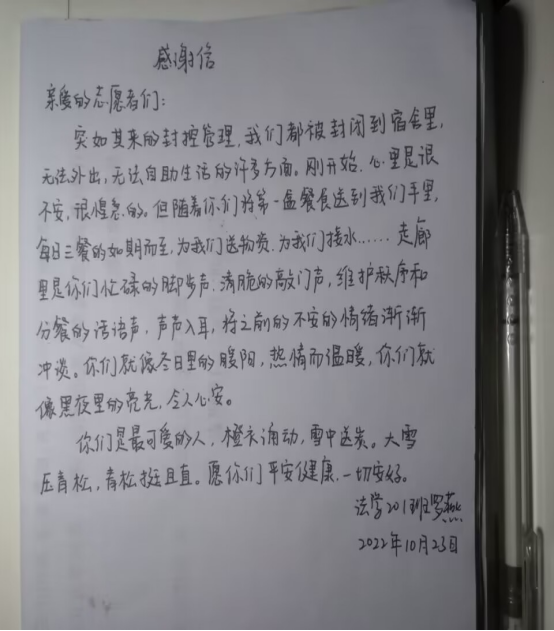 感谢信
亲爱的志愿者们：
突如其来的封控管理，我们都被封闭到宿舍里，
无法外出，无法自助生活的许多方面。刚开始，心里是很
不安，很惶急的。但随着你们将第一盒餐食送到我们手里，
每日三餐的如期而至，为我们送物资，为我们接水……走廊
里是你们忙碌的脚步声，清脆的敲门声，维护秩序和
分餐的话语声，声声入耳，将之前的不安的情绪渐渐
冲淡。你们就像冬日里的暖阳，热情而温暖，你们就
像黑夜里的亮光，令人心安。
你们是最可爱的人，橙衣涌动，雪中送炭。大雪
压青松，青松挺且直。愿你们平安健康，一切安好。
法学201班罗燕
2022年10月23日